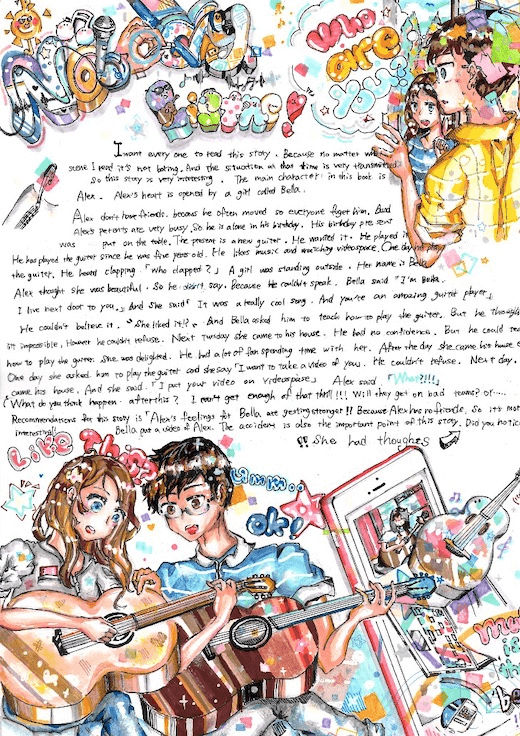 Who
are
you?
I want every one to read this story. Because no matter
scene I read it's not boring. And the situation at that time is very transmitted.
So this story is very interesting. The main character in this book is
Alex. Alex's heart is opened by a girl called Bella.
Alex don't have friends. because he often moved so everyone forget him. And
Alex's parents are very busy. So he is alone in his birthday. His birthday present
was put on the table. The present is a new guitar. He wanted it. He played it
He has played the guitar since he was five years old. He likes music and watching videospace. One day he play
the guitar. He heard clapping. 「Who clapped?」 A girl was standing outside. Her name is Bella
Alex thought she was beautiful. So he didn't say. Because he couldn't speak. Bella said "I'm Bella.
I live next door to you.」 And she said「It was a really cool song. And you're an amazing guitar player」
He couldn't believe it. 「She liked it!?」 And Bella asked him to teach how to play the guitar. But he thought
it impossible. However he couldn't refuse. Next Tursday she came to his house. He had no confidence. But he could tea
how to play the guitar. She was delighted. He had a lot of fan spending time with her. After the day she came his house
One day she asked him to play the guitar and she say「I want to take a video of you. He couldn't refuse. Next day.
came his house. And she said.「I put your video on Videospase」 Alex said.「What?!!!」
What do you think happen after this? I can't get enough of that thrill!!! Will they get on bad terms? or....
Recommendations for this story is「Alex's feelings for Bella are getting stronger!! Because Alex has no friends, so it's most
interesting!! Bella put a video of Alex. The accident is also the important point of this story. Did you notice
!! She had thoughts
Like This?
Umm..
ok!